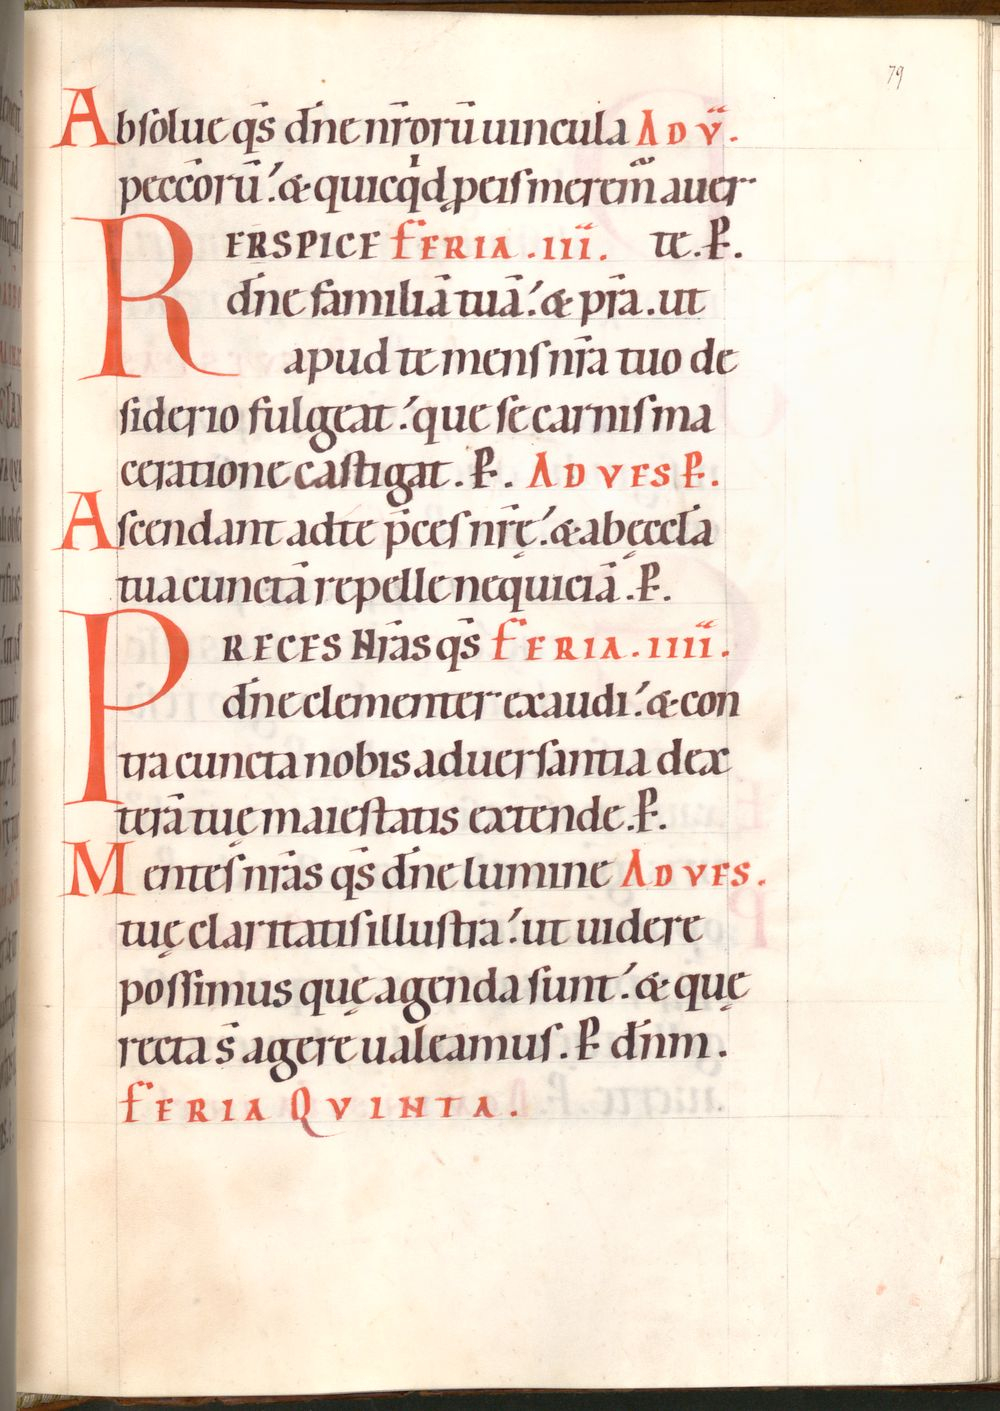 79
Absolue qs̄ dn̄e nr̄orū uincula AD V̄.
pecc̄orū; & quicqd̵ ꝑ eis merem̄ auer
RERSPICE FERIA .III. te. P̵.
dn̄e familiā tuā; & pr̄a. ut
apud te mens nr̄a tuo de
siderio fulgeat; que se carnis ma
ceratione castigat. P̵. AD VESP̵.
Ascendant ad te p̄ces nr̄ę; & ab ęccl̄a
tua cunctā repelle nequiciā. P̵.
PRECES Nr̄as qs̄ FERIA .IIII.
dn̄e clementer exaudi; & con
tra cuncta nobis aduersantia dex
terā tuę maiestatis extende. P̵.
Mentes nr̄as qs̄ dn̄e lumine AD VES.
tuę claritatis illustra; ut uidere
possimus quę agenda sunt; & quę
recta s̄ agere ualeamus. P̵ dn̄m.
FERIA QVINTA.